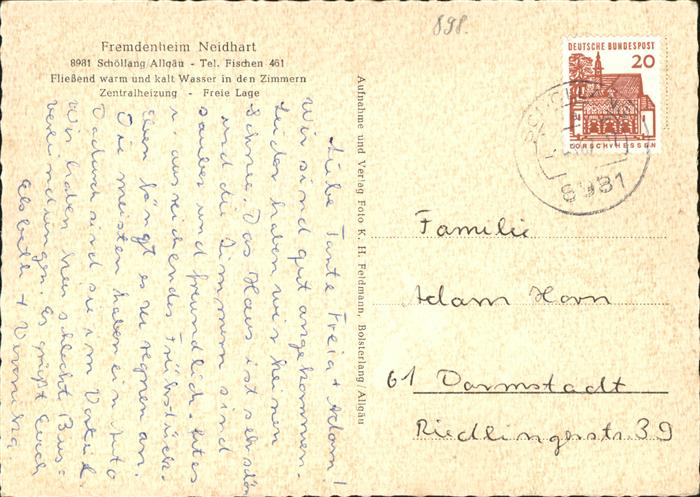 898.
Fremdenheim Neidhart
8981 Schöllang/Allgäu - Tel. Fischen 461
Fließend warm und kalt Wasser in den Zimmern
Zentralheizung - Freie Lage
Liebe Tante Freia + Adam!
Wir sind gut angekommen.
Leider haben wir keinen
Schnee. Das Haus ist sehr schön
und die Zimmer sind
sauber und freundlich. Gutes
u. ausreichendes Frühstück.
Eben fängt es zu regnen an.
Die meisten haben ein Auto
Dadurch sind sie im Vorteil.
Wir haben hier schlecht Bus=
verbindungen. Es grüßt Euch
Elsbeth + Veronika
Aufnahme und Verlag Foto K. H. Feldmann, Bolsterlang/Allgäu
DEUTSCHE BUNDESPOST
20
LORSCH/HESSEN
8981
Familie
Adam Horn
61 Darmstadt
Riedlingerstr. 39